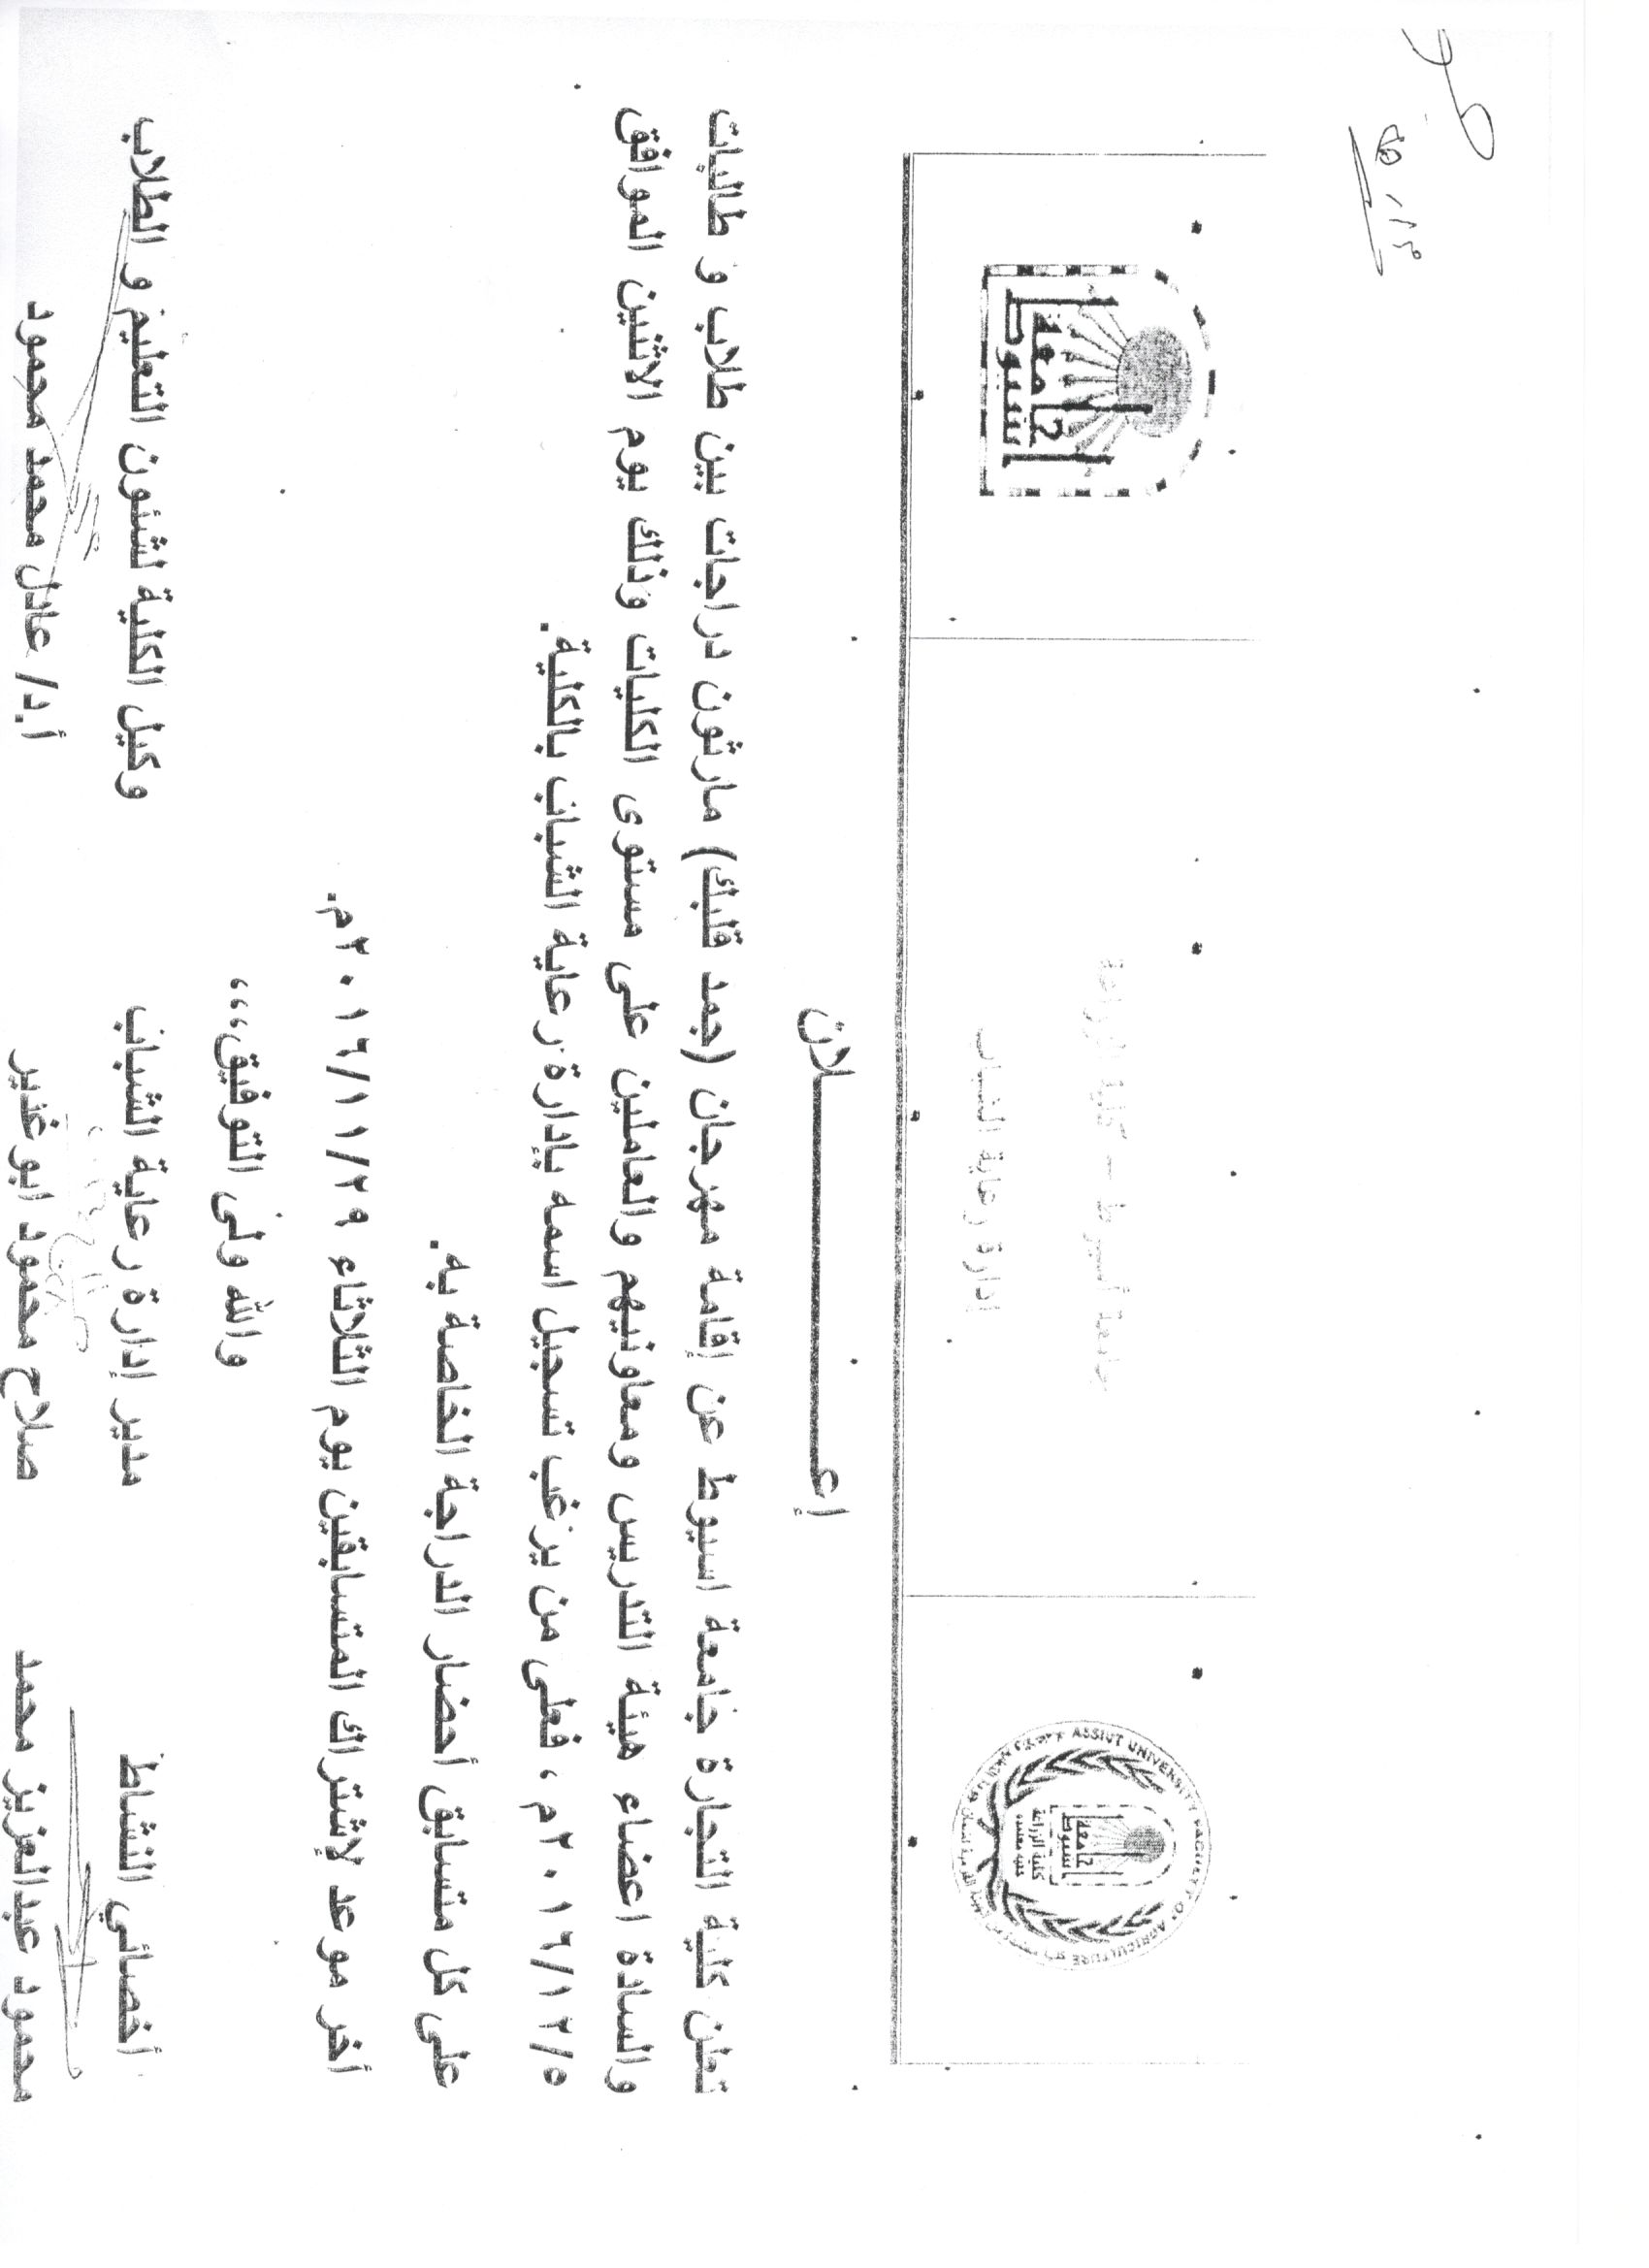 جامعة أسيوط – كلية الزراعة
إدارة رعاية الشباب
جامعة
اسيوط
ASSIUT UNIVERSITY FACULTY OF AGRICULTURE
جامعة
اسيوط
كلية الزراعة
كلية معتمدة
إعـــــــــلان
تعلن كلية التجارة جامعة اسيوط عن إقامة مهرجان (جمد قلبك) مارثون دراجات بين طلاب و طالبات
والسادة اعضاء هيئة التدريس ومعاونيهم والعاملين على مستوى الكليات وذلك يوم الاثنين الموافق
٢٠١٦/١٢/٥م ، فعلى من يرغب تسجيل اسمه بإدارة رعاية الشباب بالكلية.
على كل متسابق أحضار الدراجة الخاصة به.
أخر موعد لإشتراك المتسابقين يوم الثلاثاء ٢٠١٦/١١/٢٩م.
والله ولى التوفيق،،،
أخصائي النشاط
مدير إدارة رعاية الشباب
وكيل الكلية لشئون التعليم و الطلاب
محمود عبدالعزيز محمد
صلاح محمود ابوغدير
أ.د/ عادل محمد محمود